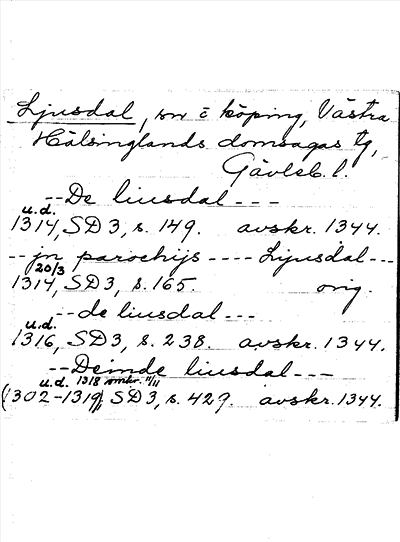 Ljusdal, sn o köping, Västra
Hälsinglands domsagas tg,
Gävleb. l.
-- De liusdal ---
u.d.
1314, SD 3, s. 149. avskr. 1344.
-- jn parochijs ---- Ljusdal ---
20/3
1314, SD 3, s. 165. orig.
-- de liusdal ---
u.d.
1316, SD 3, s. 238. avskr. 1344.
-- Deinde liusdal ---
u.d. 1318 omkr. 11/11
(1302-1319), SD 3, s. 429. avskr. 1344.